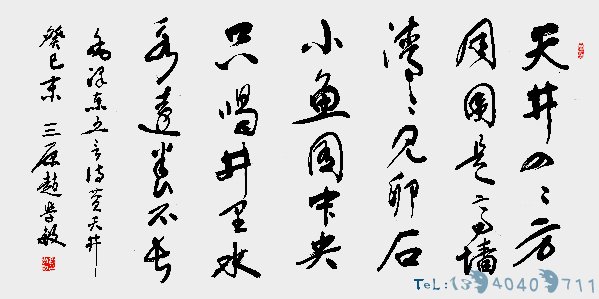 天井四〻方
周围是高墙
清〻见卵石
小鱼囿中央
只喝井里水
永遠养不长
毛泽东五言诗赞天井
癸巳末 三原趙学敏
TeL:13940409711